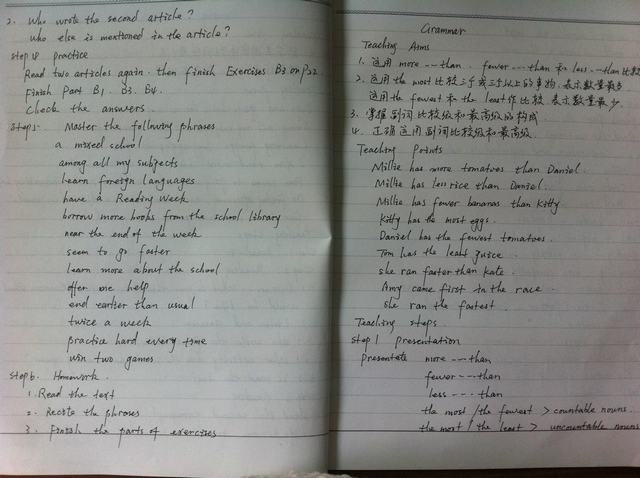 2. Who wrote the second article?
Who else is mentioned in the article?
Step 4 practice
Read two articles again. then finish Exercises B3 on P22.
Finish Part B1. B3. B4.
Check the answers.
Step5. Master the following phrases
a mixed school
among all my subjects
learn foreign languages
have a Reading Week
borrow more books from the school library
near the end of the week
seem to go faster
learn more about the school
offer me help
end earlier than usual
twice a week
practice hard every time
win two games
Step 6. Homework.
1. Read the text
2. Recite the phrases
3. Finish the parts of exercises
Grammer
Teaching Aims
1. 运用 more --- than. fewer --- than 和 less --- than 比较
2. 运用 the most 比较三个或三个以上的事物. 表示数量最多
运用 the fewest 和 the least 作比较. 表示数量最少.
3. 掌握副词比较级和最高级的构成
4. 正确运用副词比较级和最高级.
Teaching Points
Millie has more tomatoes than Daniel.
Millie has less rice than Daniel.
Millie has fewer bananas than Kitty.
Kitty has the most eggs.
Daniel has the fewest tomatoes.
Tom has the least juice.
She ran faster than Kate.
Amy came first in the race.
She ran the fastest.
Teaching steps
Step 1 presentation
Presentate more --- than
fewer --- than
less --- than
the most / the fewest > countable nouns.
the most / the least > uncountable nouns